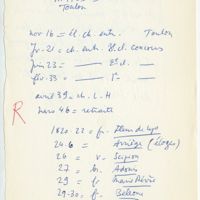 Toulon
nov 16 = El. ch. entr. Toulon
fv. 21 = ch. entr. 3e cl. concours
juin 23 = — 2e cl. —
fév. 33 = — 1e —
avril 39 = ch. L.H
R
mars 46 = retraite
1820-22 = fr. Fleur de lys
24.6 = Ariège (éloges)
26 = v. Scipion
27 = b. Adonis
29 = f. Marie Thérèse
29-30 = f. Bellone